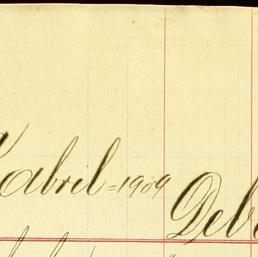 abril = 1909 Deb